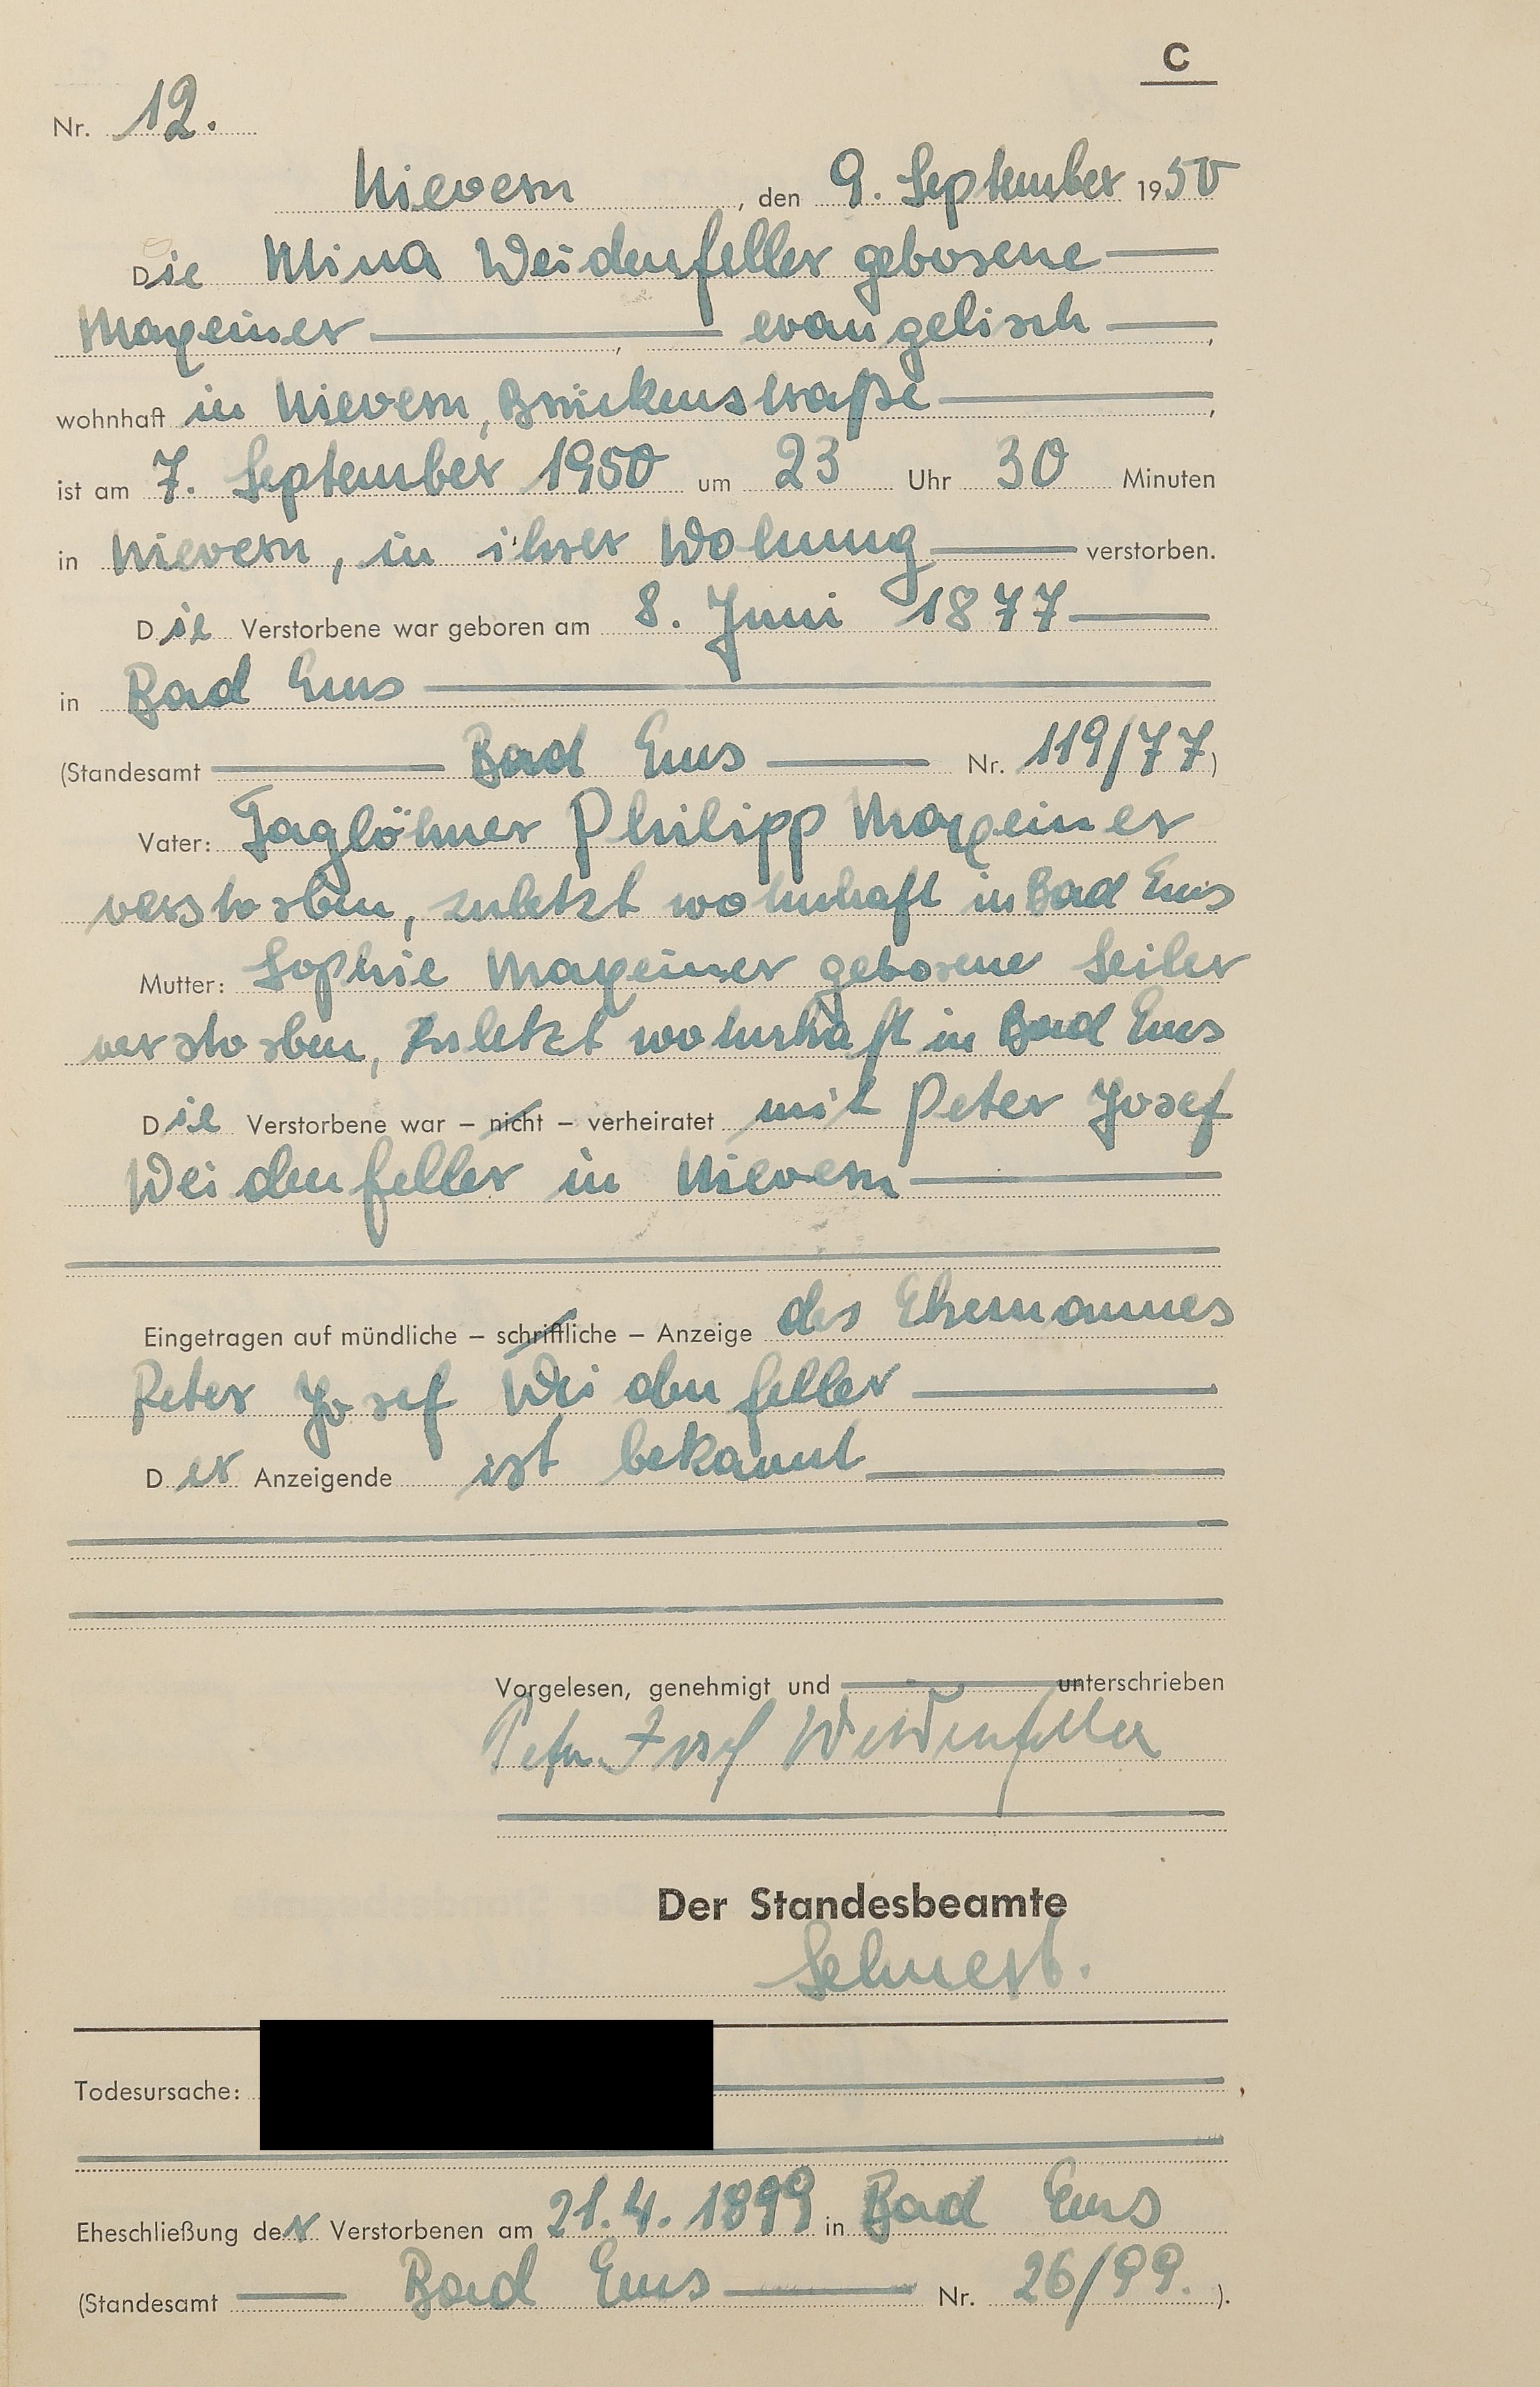 C
Nr. 12.
Nievern, den 9. September 1950
Die Mina Weidenfeller geborene
Maxeiner, evangelisch,
wohnhaft in Nievern, Brückenstraße,
ist am 7. September 1950 um 23 Uhr 30 Minuten
in Nievern, in ihrer Wohnung verstorben.
Die Verstorbene war geboren am 8. Juni 1877
in Bad Ems
(Standesamt Bad Ems Nr. 119/77)
Vater: Taglöhner Philipp Maxeiner
verstorben, zuletzt wohnhaft in Bad Ems
Mutter: Sophie Maxeiner geborene Seiler
verstorben, zuletzt wohnhaft in Bad Ems
Die Verstorbene war – nicht – verheiratet mit Peter Josef
Weidenfeller in Nievern
Eingetragen auf mündliche – schriftliche – Anzeige des Ehemannes
Peter Josef Weidenfeller
Der Anzeigende ist bekannt
Vorgelesen, genehmigt und unterschrieben
Peter Josef Weidenfeller
Der Standesbeamte
Todesursache:
Eheschließung der Verstorbenen am 21.4.1899 in Bad Ems
(Standesamt Bad Ems Nr. 26/99.).